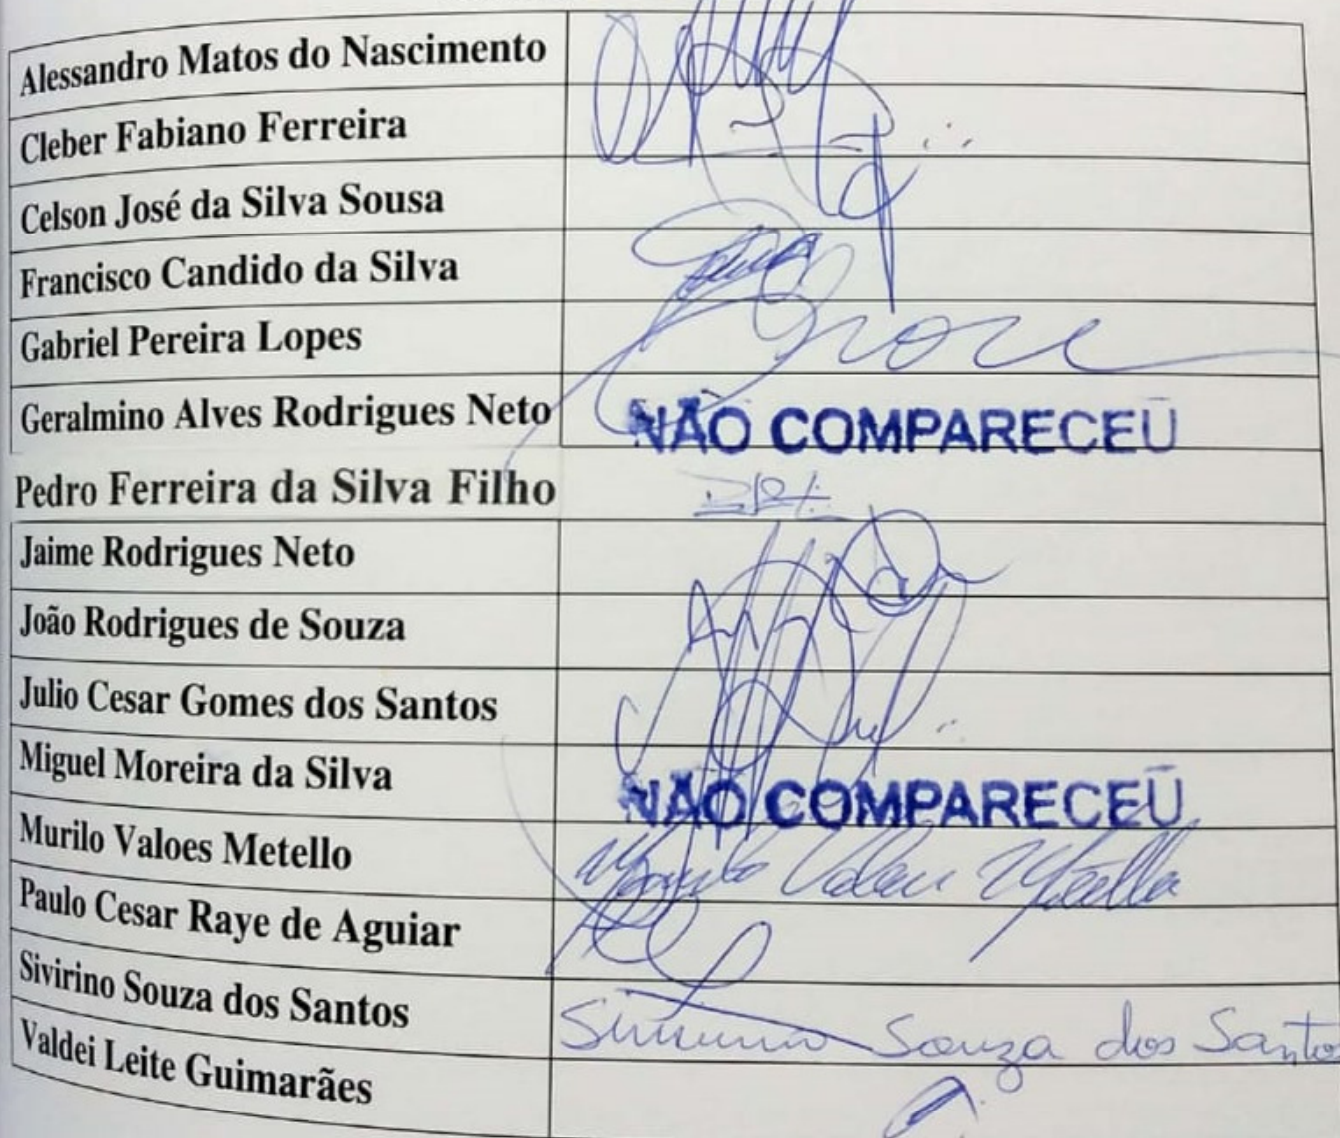 Alessandro Matos do Nascimento
Cleber Fabiano Ferreira
Celson José da Silva Sousa
Francisco Candido da Silva
Gabriel Pereira Lopes
Geralmino Alves Rodrigues Neto NÃO COMPARECEU
Pedro Ferreira da Silva Filho
Jaime Rodrigues Neto
João Rodrigues de Souza
Julio Cesar Gomes dos Santos
Miguel Moreira da Silva NÃO COMPARECEU
Murilo Valoes Metello Murilo Valoes Metello
Paulo Cesar Raye de Aguiar
Sivirino Souza dos Santos Souza dos Santos
Valdei Leite Guimarães